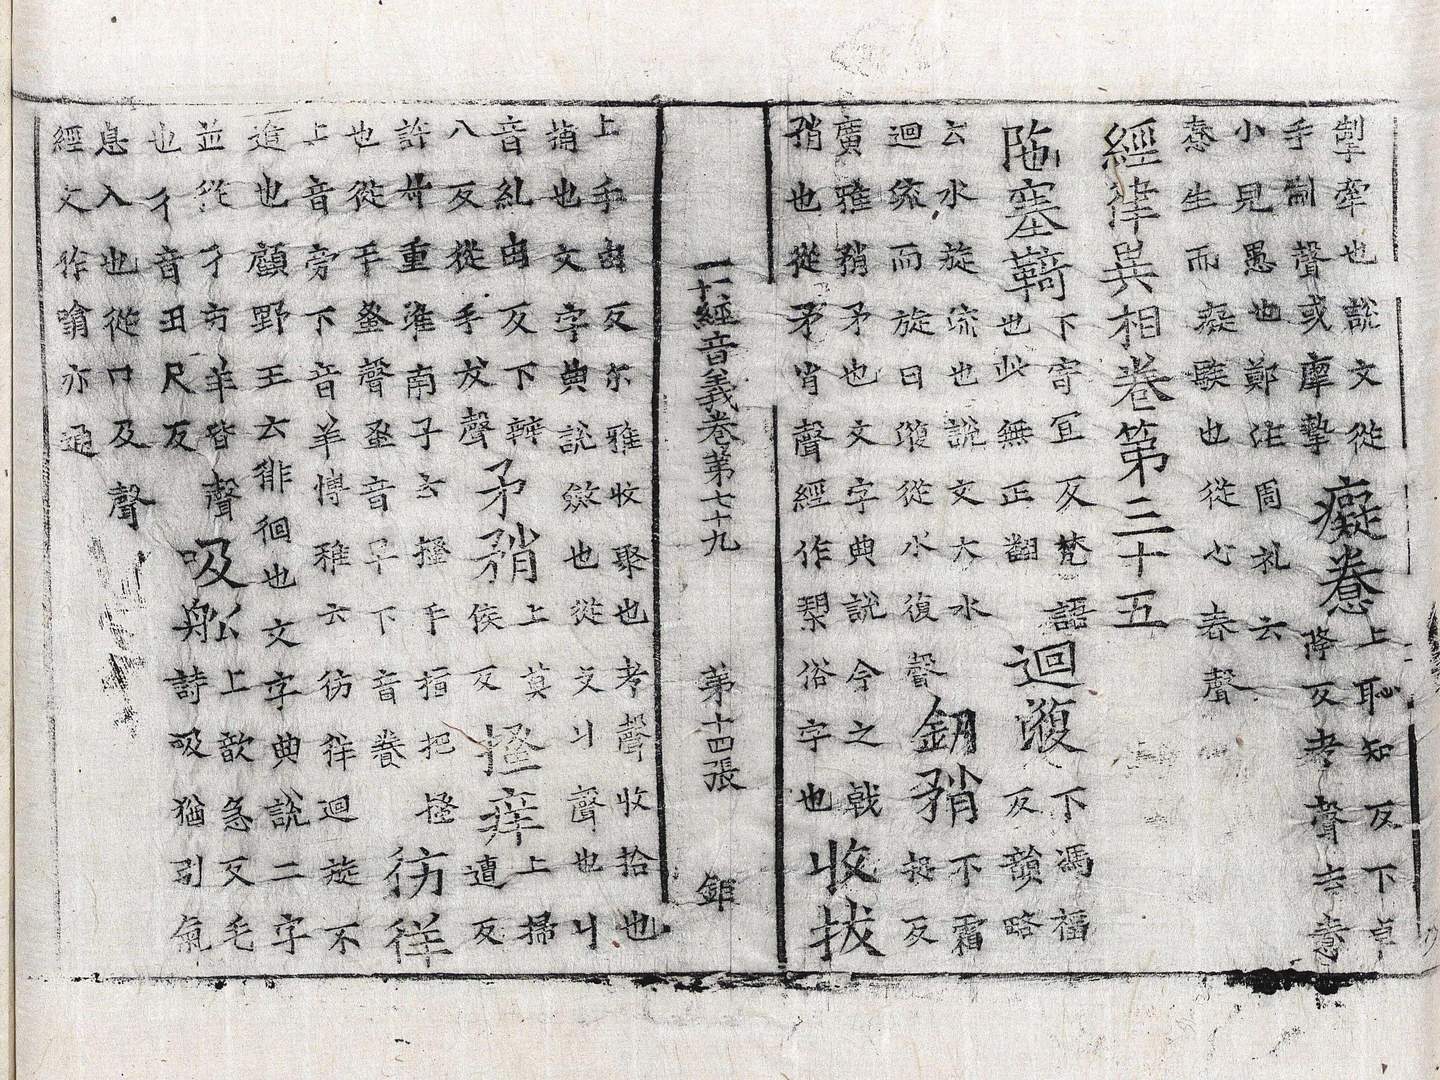 掣牽也說文從
手制聲或摩摯
癡惷
上恥知反下卓
降反考聲云惷
小兒愚也鄭注周礼云
惷生而癡騃也從心舂聲
經律異相卷第三十五
陁塞䩭
下寄冝反梵語
也此無正翻
迴澓
下馮福
反韻略
云水旋流也說文大水
迴流而旋曰澓從水復聲
釼矟
下霜
捉反
廣雅矟矛也文字典說今之戟
矟也從矛肖聲經作槊俗字也
收拔
一切經音義卷第七十九 第十四張
上手由反尒雅收聚也考聲收拾也
捕也文字典說斂也從攴丩聲也丩
音糺由反下辨
八反從手犮聲
矛矟
上莫
侯反
搔痒
上掃
遭反
許叔重淮南子云搔手指把搔
也從手蚤聲蚤音早下音養
彷徉
上音旁下音羊博雅云彷徉迴旋不
進也顧野王云徘徊也文字典說二字
並從彳方羊皆聲
也彳音丑尺反
吸船
上歆急反毛
詩吸猶引氣
息入也從口及聲
經文作噏亦通